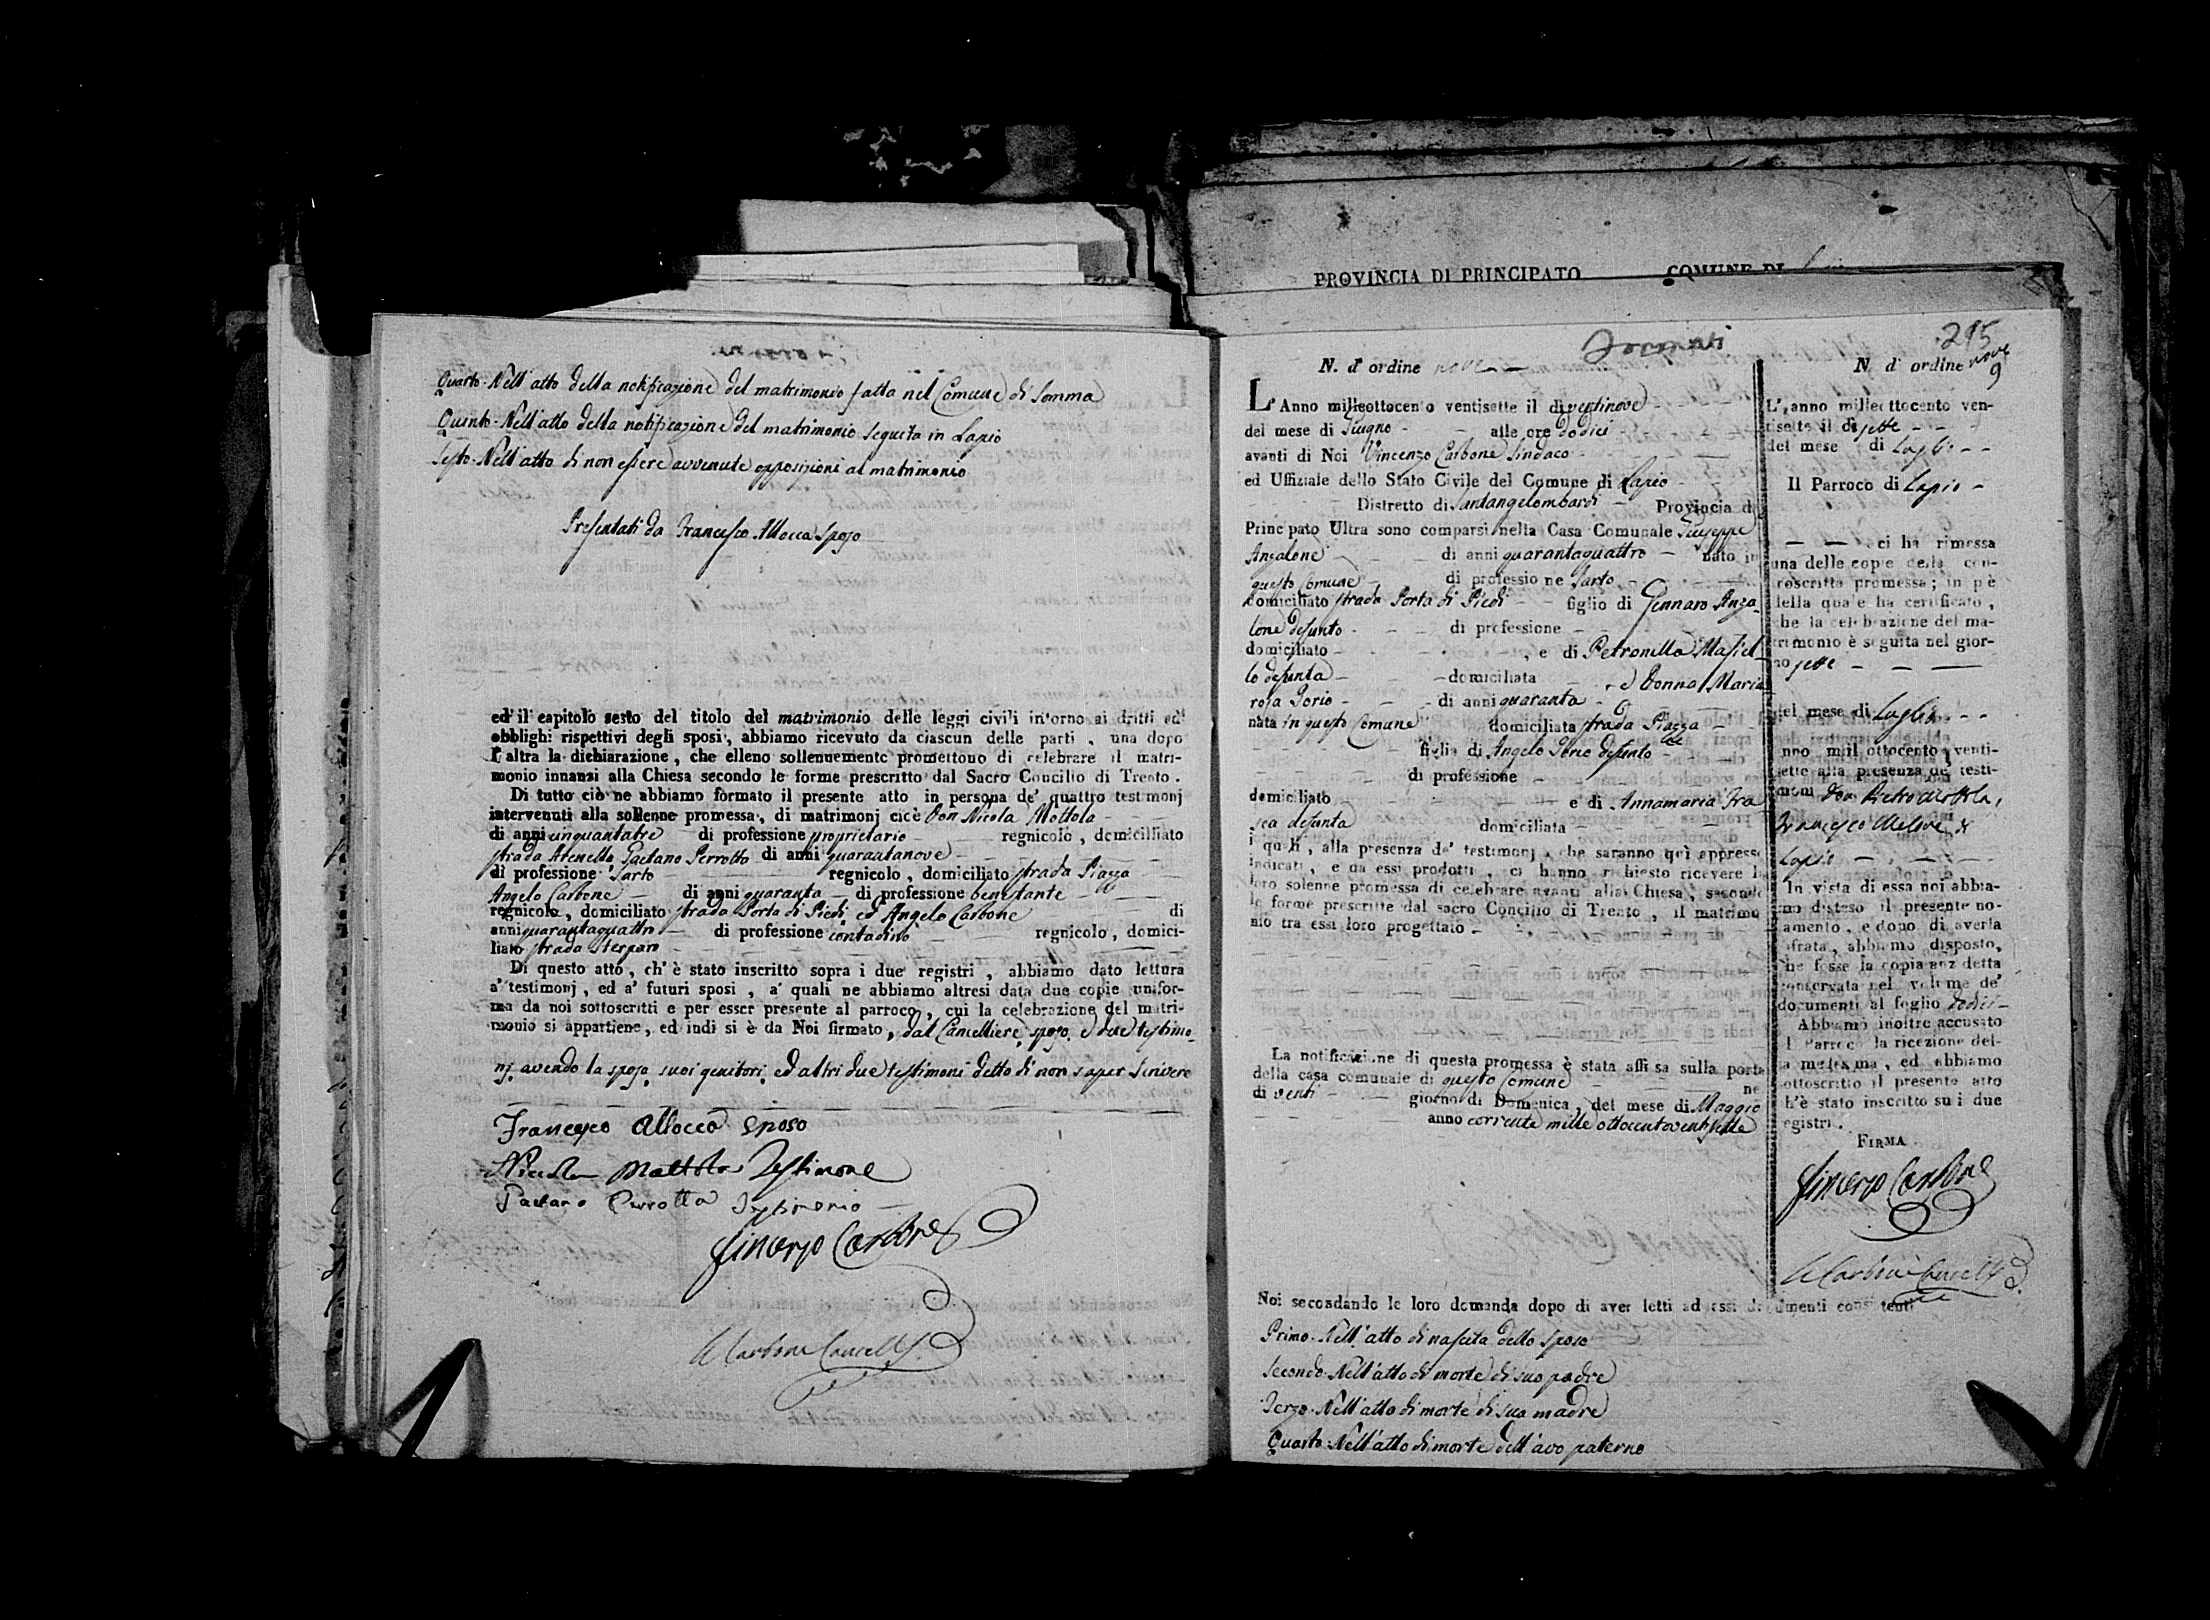 Quarto. Nell'atto della notificazione del matrimonio fatta nel Comune di Somma
Quinto. Nell'atto della notificazione del matrimonio seguita in Lapio
Sesto. Nell'atto di non essere avvenute opposizioni al matrimonio
Presentati da Francesco Allocca sposo
ed il capitolo sesto del titolo del matrimonio delle leggi civili intorno ai dritti ed
obblighi rispettivi degli sposi, abbiamo ricevuto da ciascun delle parti, una dopo
l'altra la dichiarazione, che elleno sollennemente promettono di celebrare il matri-
monio innanzi alla Chiesa secondo le forme prescritto dal Sacro Concilio di Trento.
Di tutto ciò ne abbiamo formato il presente atto in persona de' quattro testimonj
intervenuti alla sollenne promessa, di matrimonj cioè Don Nicola Mottola
di anni cinquantatre di professione proprietario regnicolo, domicilliato
strada Atenello Gaetano Perrotto di anni quarantanove
di professione Sarto regnicolo, domiciliato strada Piazza
Angelo Carbone di anni quaranta di professione benestante
regnicolo, domiciliato strada Porta di Piedi ed Angelo Carbone di
anni quarantaquattro di professione contadino regnicolo, domici-
liato strada Sterparo
Di questo atto, ch'è stato inscritto sopra i due registri, abbiamo dato lettura
a' testimonj, ed a' futuri sposi, a' quali ne abbiamo altresi data due copie unifor-
ma da noi sottoscritti e per esser presente al parroco, cui la celebrazione del matri-
monio si appartiene, ed indi si è da Noi firmato, dal Cancelliere, sposo, e due testimo-
nj, avendo la sposa, suoi genitori, ed altri due testimoni detto di non saper scrivere
Francesco Allocca sposo
Nicola Mottola Testimone
Gaetano Perrotta Testimonio
Vincenzo Carbone
Carbone Cancell.
PROVINCIA DI PRINCIPATO COMUNE DI
295
N. d'ordine nove
L'Anno milleottocento ventisette il di ventinove
del mese di Giugno alle ore dodici
avanti di Noi Vincenzo Carbone Sindaco
ed Uffiziale dello Stato Civile del Comune di Lapio
Distretto di Santangelombardi Provincia di
Principato Ultra sono comparsi nella Casa Comunale Giuseppe
Anzalone di anni quarantaquattro nato in
questo Comune di professione Sarto
domiciliato strada Porta di Piedi figlio di Gennaro Anza-
lone defunto di professione
domiciliato , e di Petronilla Masiel-
lo defunta domiciliata e Donna Maria
rosa Iorio di anni quaranta
nata in questo Comune domiciliata strada Piazza
figlia di Angelo Iorio defunto
di professione
domiciliato e di Annamaria Tra
sca defunta domiciliata
i quali, alla presenza de' testimonj, che saranno qui appresso
indicati, e da essi prodotti, ci hanno richiesto ricevere la
loro solenne promessa di celebrare avanti alla Chiesa, secondo
le forme prescritte dal sacro Concilio di Trento, il matrimo
nio tra essi loro progettato
La notificazione di questa promessa è stata affissa sulla porta
della casa comunale di questo Comune ne
di venti giorno di Domenica, del mese di Maggio
anno corrente mille ottocentoventisette
Noi secondando le loro domanda dopo di aver letti ad essi documenti consistenti
Primo. Nell'atto di nascita dello sposo
Secondo. Nell'atto di morte di suo padre
Terzo. Nell'atto di morte di sua madre
Quarto. Nell'atto di morte dell'avo paterno
N. d'ordine nove
9
L'anno milleottocento ven-
tisette il di sette
del mese di Luglio
Il Parroco di Lapio
ci ha rimessa
una delle copie della con-
troscritta promessa; in piè
della quale ha certificato,
che la celebrazione del ma-
trimonio è seguita nel gior-
no sette
del mese di Luglio
anno mill ottocento venti-
sette alla presenza de' testi-
moni Don Pietro Mottola,
Francesco Melone di
Lapio
In vista di essa noi abbia-
mo disteso il presente no-
tamento, e dopo di averla
cifrata, abbiamo disposto,
che fosse la copia anz detta
conservata nel volume de'
documenti al foglio dodici
Abbiamo inoltre accusato
al Parroco la ricezione del-
la medesima, ed abbiamo
sottoscritto il presente atto
ch'è stato inscritto su i due
registri.
FIRMA
Vincenzo Carbone
Carbone Cancell.